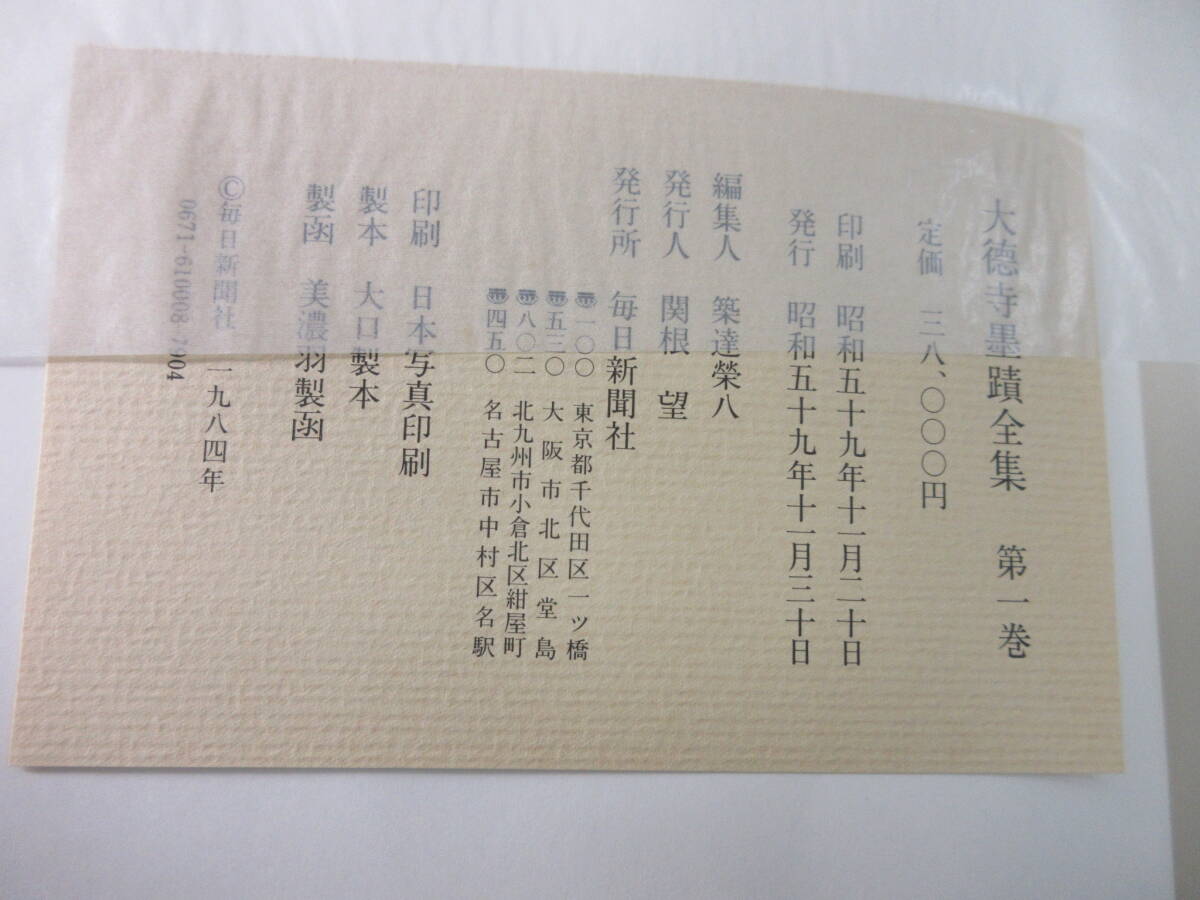 大德寺墨蹟全集　第一巻
定価　三八、〇〇〇円
印刷　昭和五十九年十一月二十日
発行　昭和五十九年十一月三十日
編集人　築達榮八
発行人　関根　望
発行所　毎日新聞社
〠一〇〇　東京都千代田区一ツ橋
〠五三〇　大阪市北区堂島
〠八〇二　北九州市小倉北区紺屋町
〠四五〇　名古屋市中村区名駅
印刷　日本写真印刷
製本　大口製本
製函　美濃羽製函
©毎日新聞社　一九八四年
0671-610008-7904